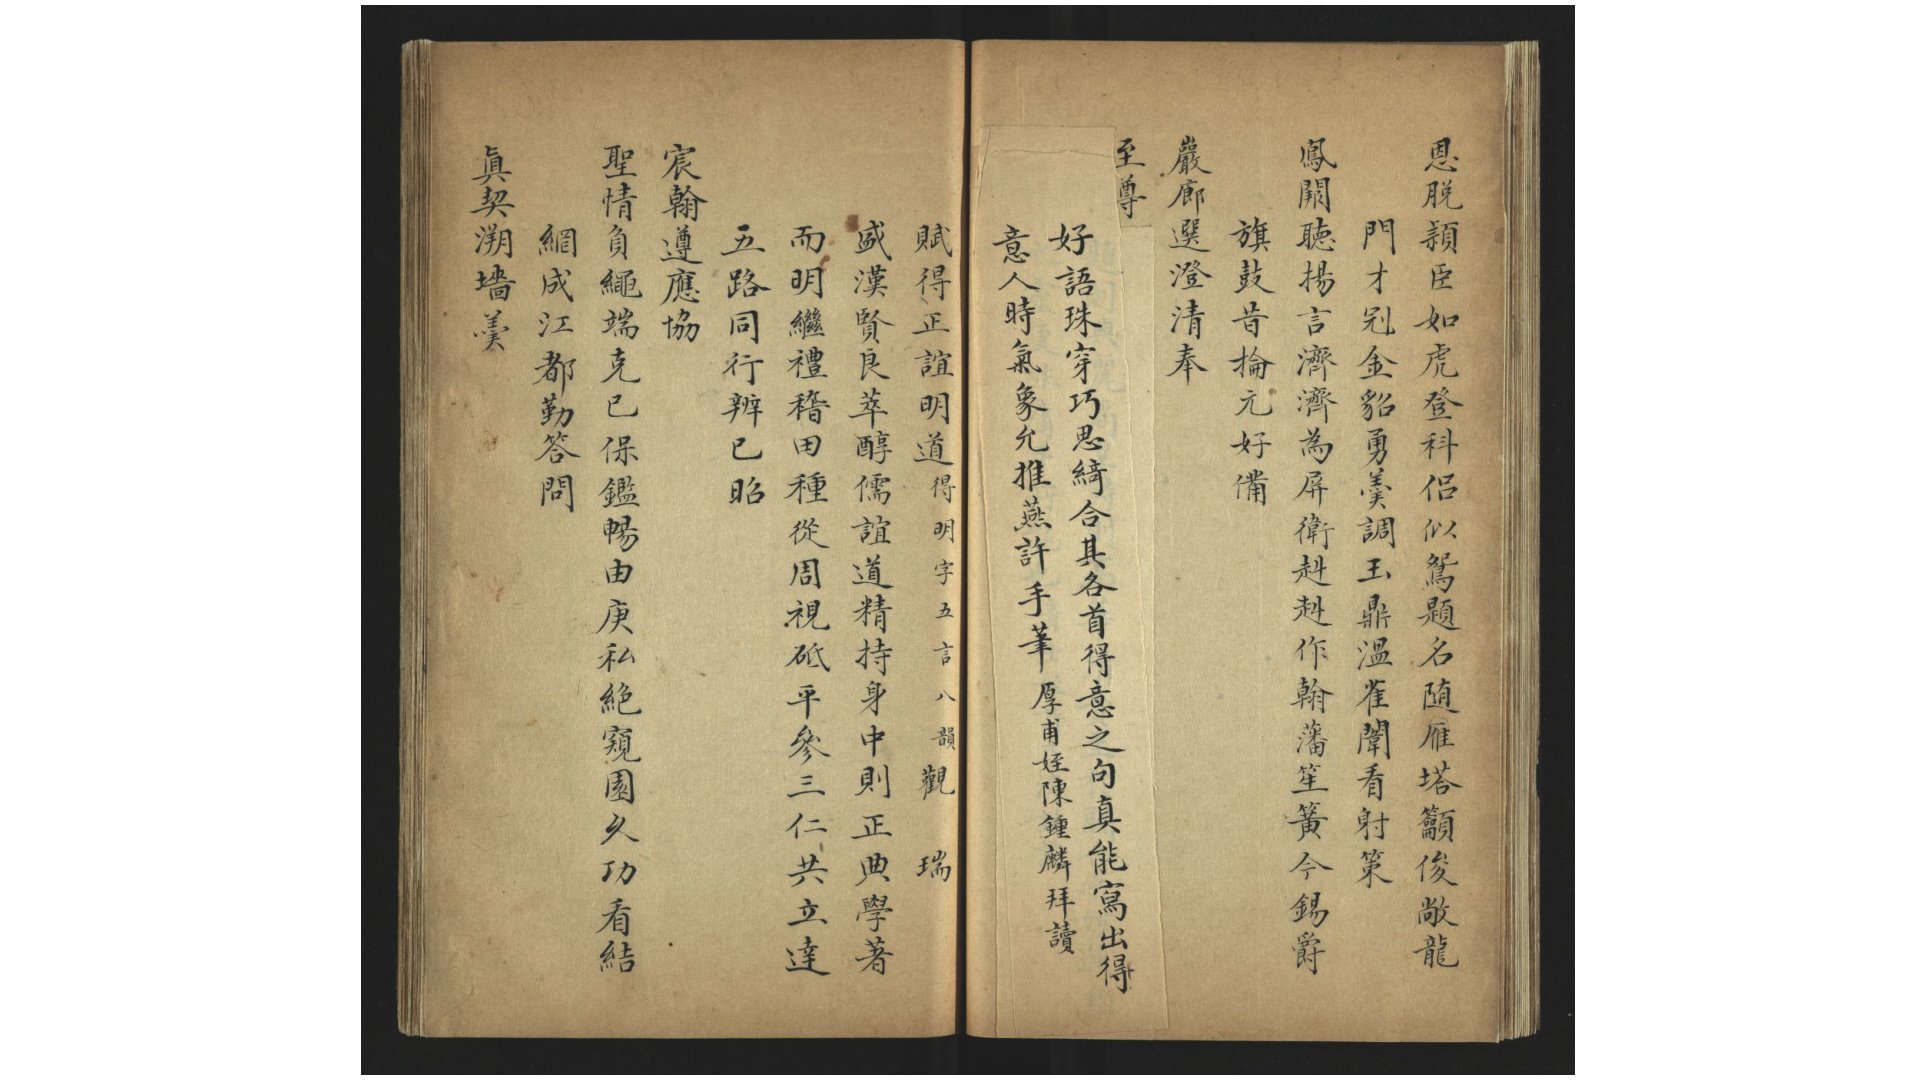 恩脱穎臣如虎登科侣似鴛題名随雁塔籲俊敞龍
門才兇金貂勇羹調玉鼎温雀闈看射策
鳳闕聴揚言濟濟為屏衛赳赳作翰藩笙簧今錫爵
旗鼓昔掄元好備
巖廊選澄清奉
至尊
好語珠穿巧思綺合其各首得意之句真能寫出得
意人時氣象允推燕許手筆 厚甫姪陳鍾麟拜讀
賦得正誼明道得明字五言八韻 觀瑞
盛漢賢良萃醇儒誼道精持身中則正典學著
而明繼禮稽田種從周視砥平參三仁共立達
五路同行辨已昭
宸翰遵應協
聖情負繩端克已保鑑暢由庚私絶窺園久功看結
綱成江都勤答問
眞契溯墻羹